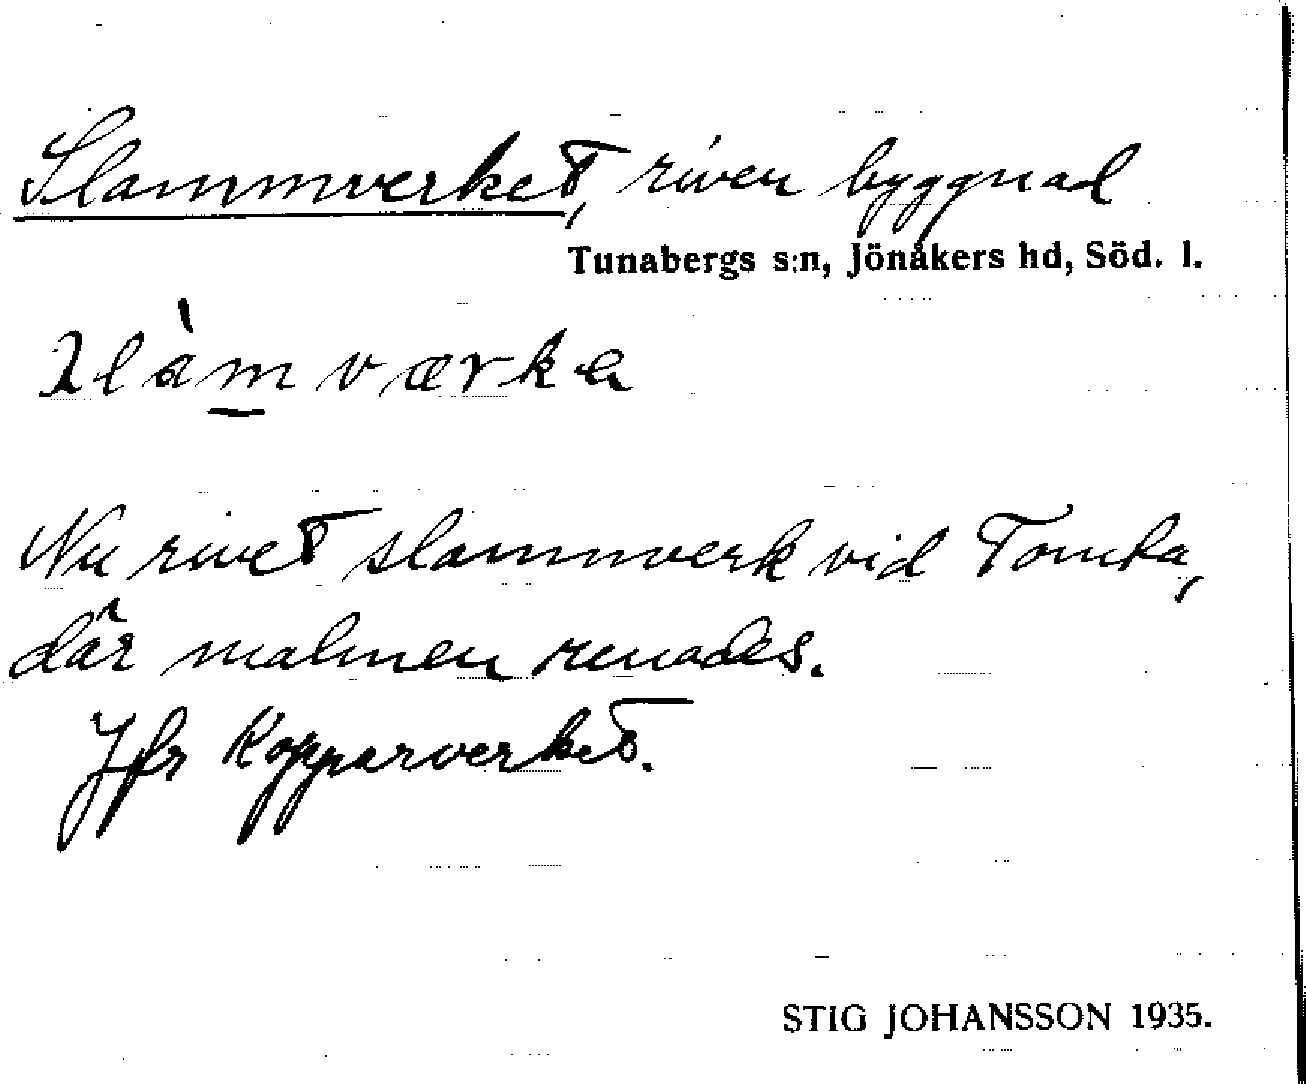 Slammverket, riven byggnad
Tunabergs s:n, Jönåkers hd, Söd. l.
slàm værka
Nu rivet slammverk vid Tomta,
där malmen renades.
Jfr Kopparverket.
STIG JOHANSSON 1935.